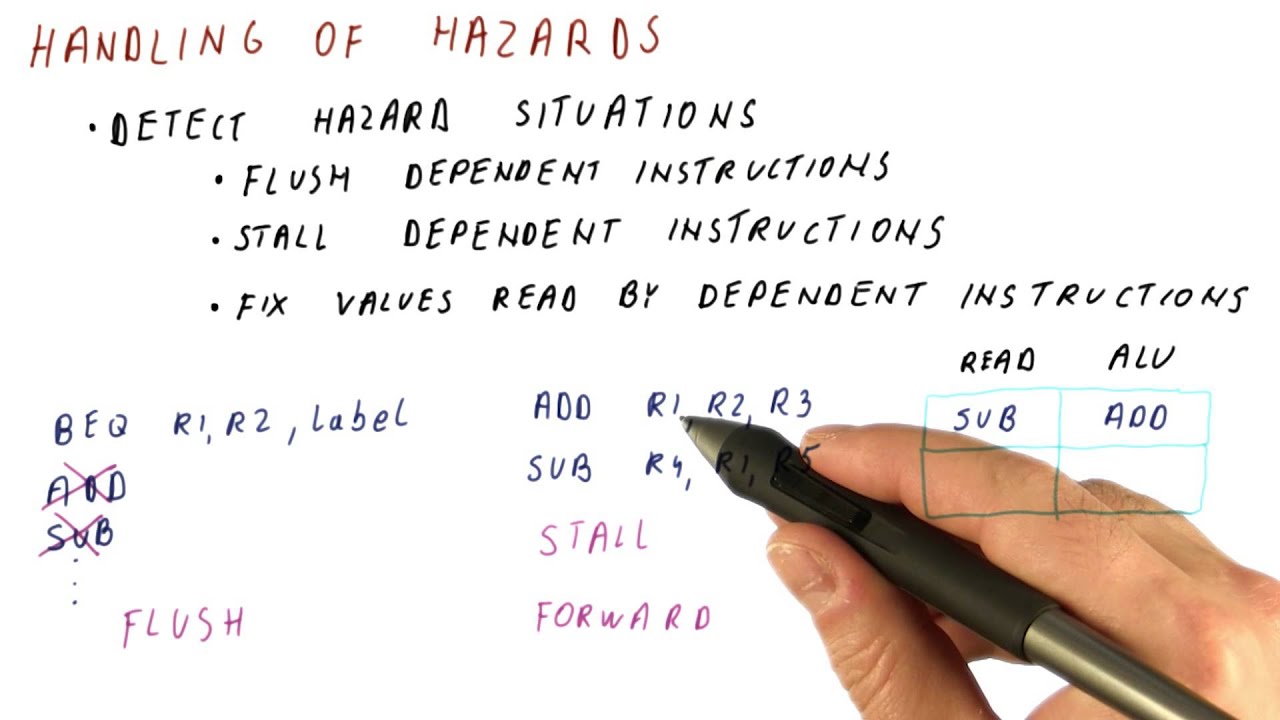 HANDLING OF HAZARDS
• DETECT HAZARD SITUATIONS
• FLUSH DEPENDENT INSTRUCTIONS
• STALL DEPENDENT INSTRUCTIONS
• FIX VALUES READ BY DEPENDENT INSTRUCTIONS
READ ALU
SUB ADD
BEQ R1, R2, Label
ADD
SUB
FLUSH
ADD R1, R2, R3
SUB R4, R1, R5
STALL
FORWARD